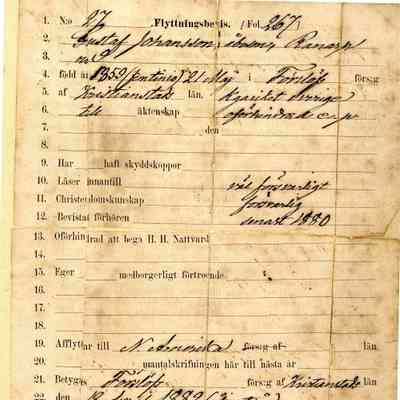 1. N:o 27 Flyttningsbevis. (Fol. 267)
2. Gustaf Johansson,
3. No 2
4. född år 1859 (femtionio) 21 Maj i Förslöf förs:g
5. af Kristianstads län.
6. till äktenskap oförhindrad
7. den
8.
9. Har haft skyddskoppor
10. Läser innantill väl försvarligt
11. Christendomskunskap försvarlig
12. Bevistat förhören senast 1880
13. Oförhindrad att bega H. H. Nattvard
14.
15. Eger medborgerligt förtroende.
16.
17.
18.
19. Afflyttar till N. Amerika förs:g af län
20. mantalskrifningen här till nästa år
21. Betygas Förslöf förs:g af Kristianstads län
22. den